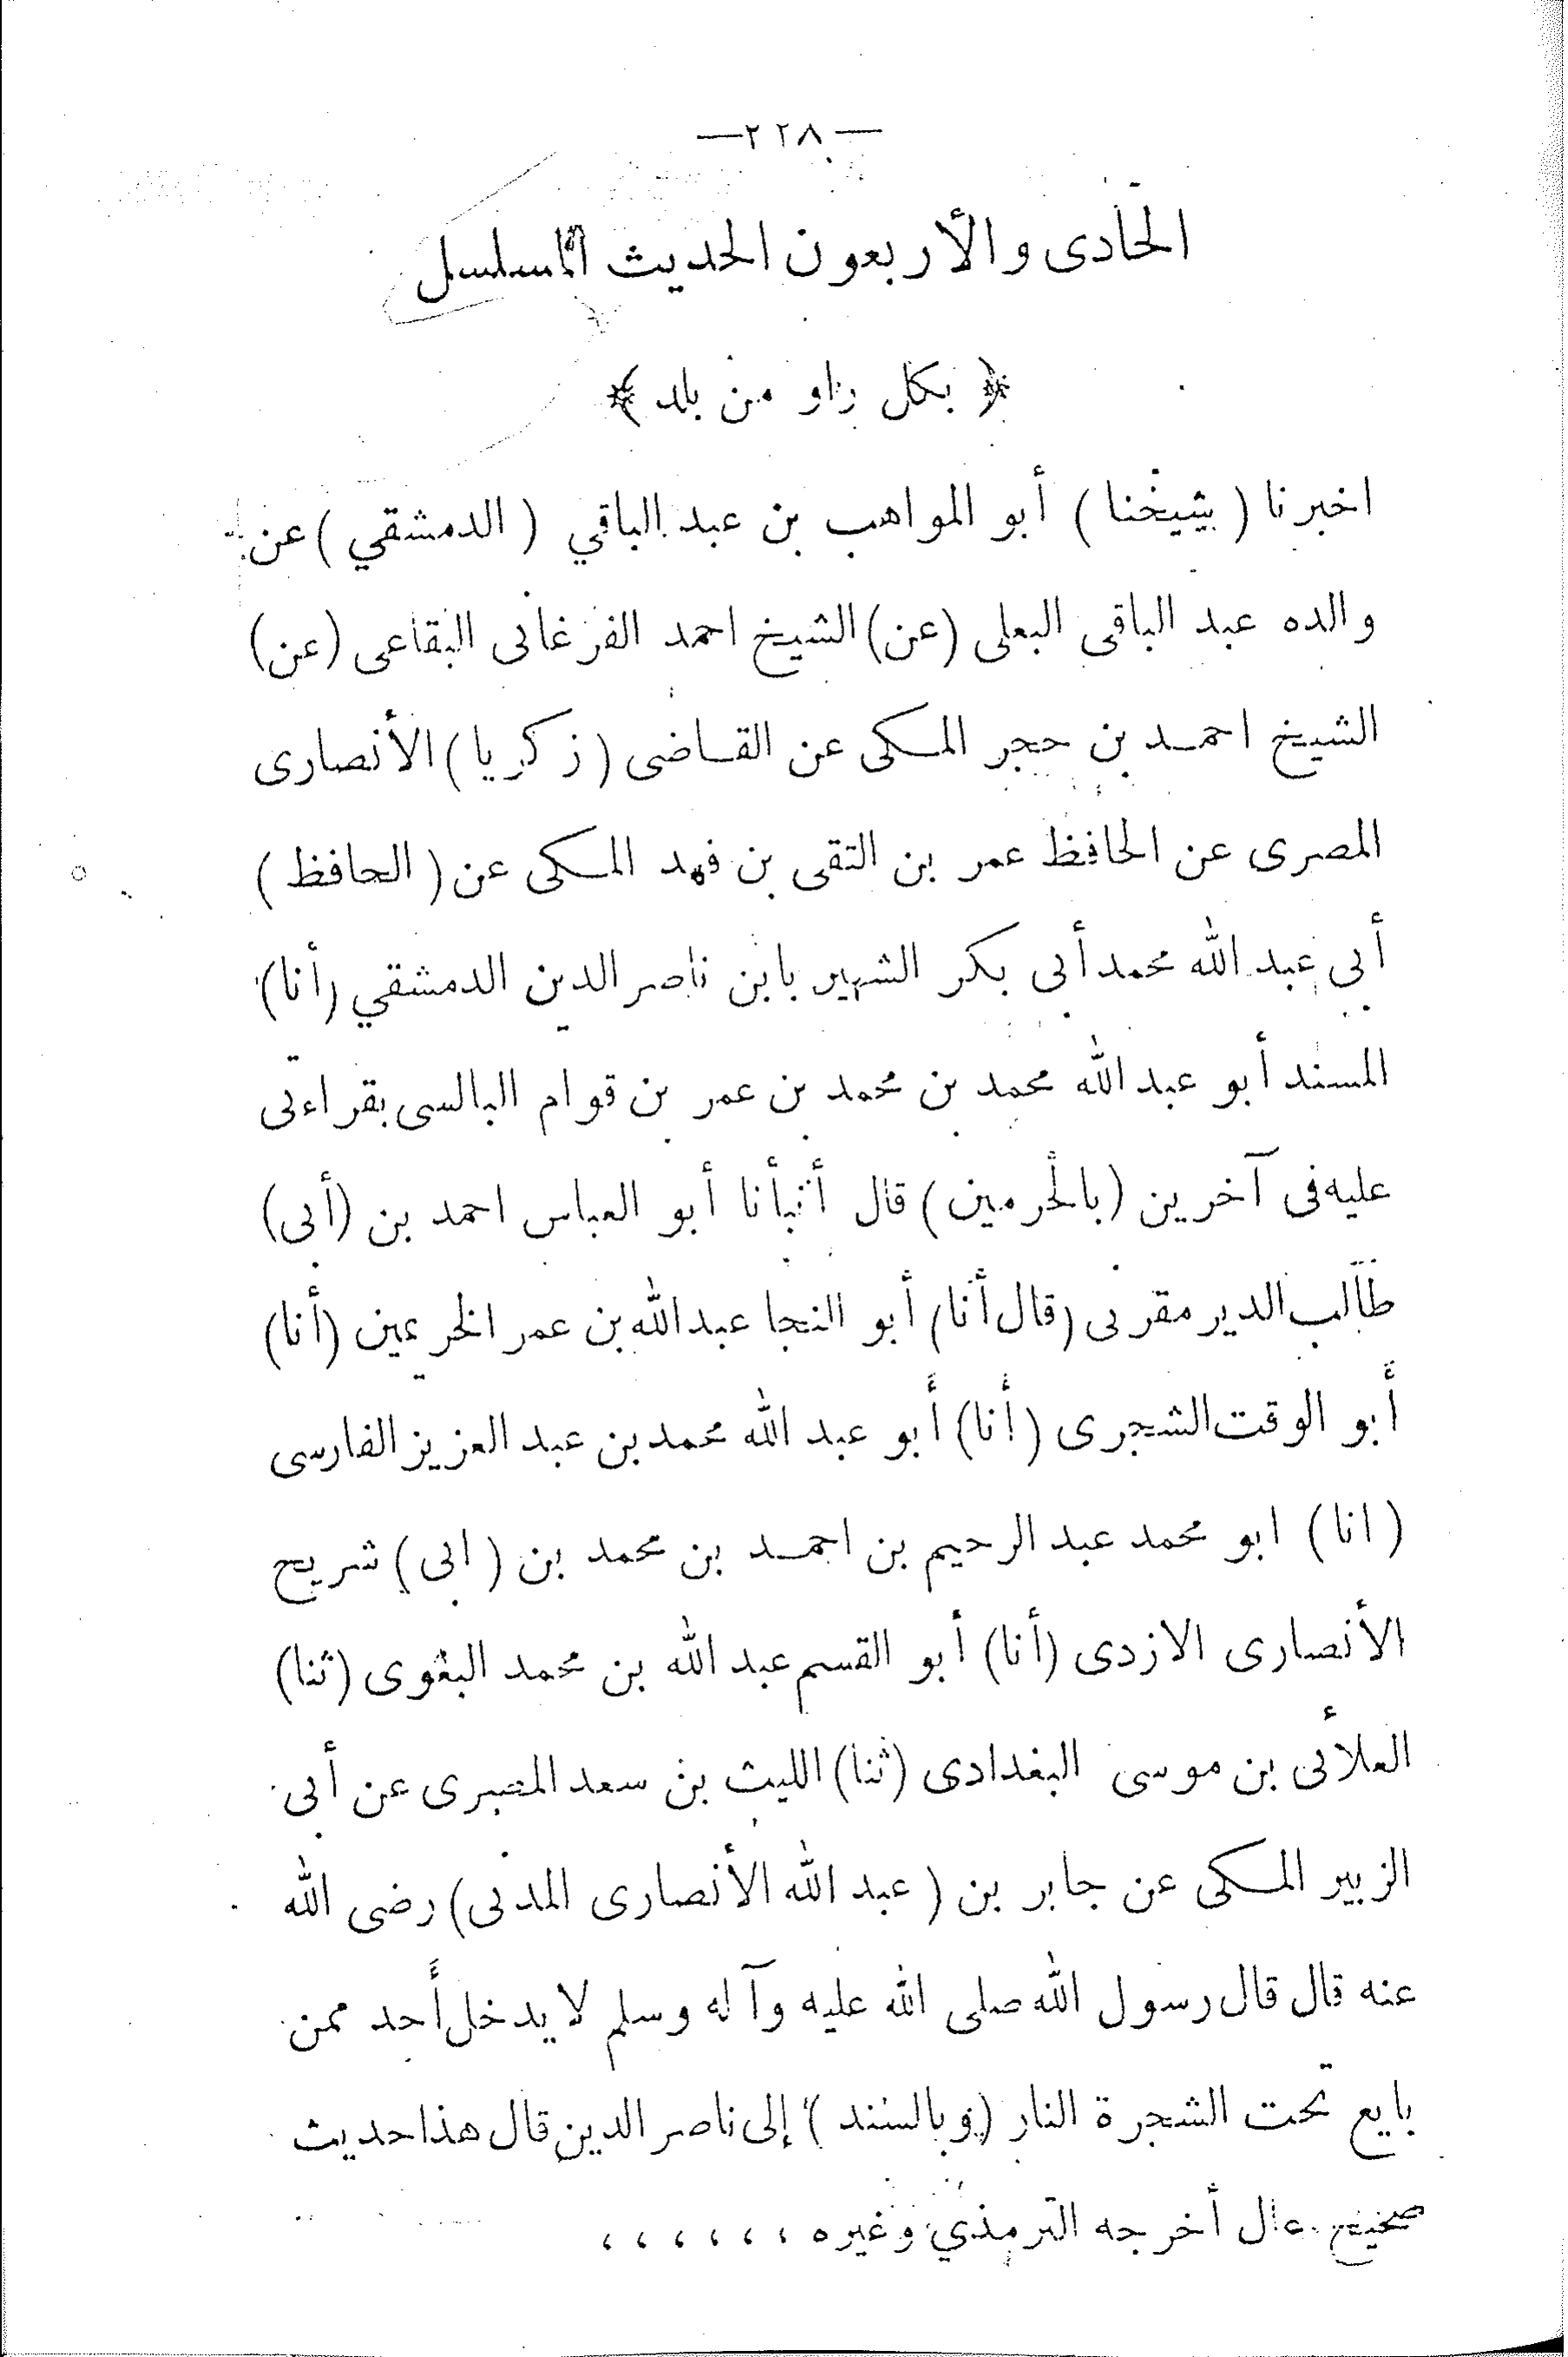 —٢٢٨—
الحادى والأربعون الحديث المسلسل
﴿ بكل راو من بلد ﴾
اخبرنا ( شيخنا ) أبو المواهب بن عبد الباقي ( الدمشقي ) عن
والده عبد الباقى البعلى (عن) الشيخ احمد الفرغانى البقاعى (عن)
الشيخ احمد بن حجر المكى عن القاضى ( زكريا ) الأنصارى
المصرى عن الحافظ عمر بن التقى بن فهد المكى عن ( الحافظ )
أبى عبد الله محمد أبى بكر الشهير بابن ناصر الدين الدمشقي (أنا)
المسند أبو عبد الله محمد بن محمد بن عمر بن قوام البالسى بقراءتى
عليه فى آخرين (بالحرمين) قال أنبأنا أبو العباس احمد بن (أبى)
طالب الديرمقرنى (قال أنا) أبو النجا عبد الله بن عمر الخرعين (أنا)
أبو الوقت الشجرى (أنا) أبو عبد الله محمد بن عبد العزيز الفارسى
( انا ) ابو محمد عبد الرحيم بن احمد بن محمد بن ( ابى ) شريح
الأنصارى الازدى (أنا) أبو القسم عبد الله بن محمد البغوى (ثنا)
العلائى بن موسى البغدادى (ثنا) الليث بن سعد المصرى عن أبى
الزبير المكى عن جابر بن ( عبد الله الأنصارى المدنى ) رضى الله
عنه قال قال رسول الله صلى الله عليه وآله وسلم لا يدخل أحد ممن
بايع تحت الشجرة النار (وبالسند ) إلى ناصر الدين قال هذا حديث
صحيح عال أخرجه الترمذي وغيره ، ، ، ، ، ،